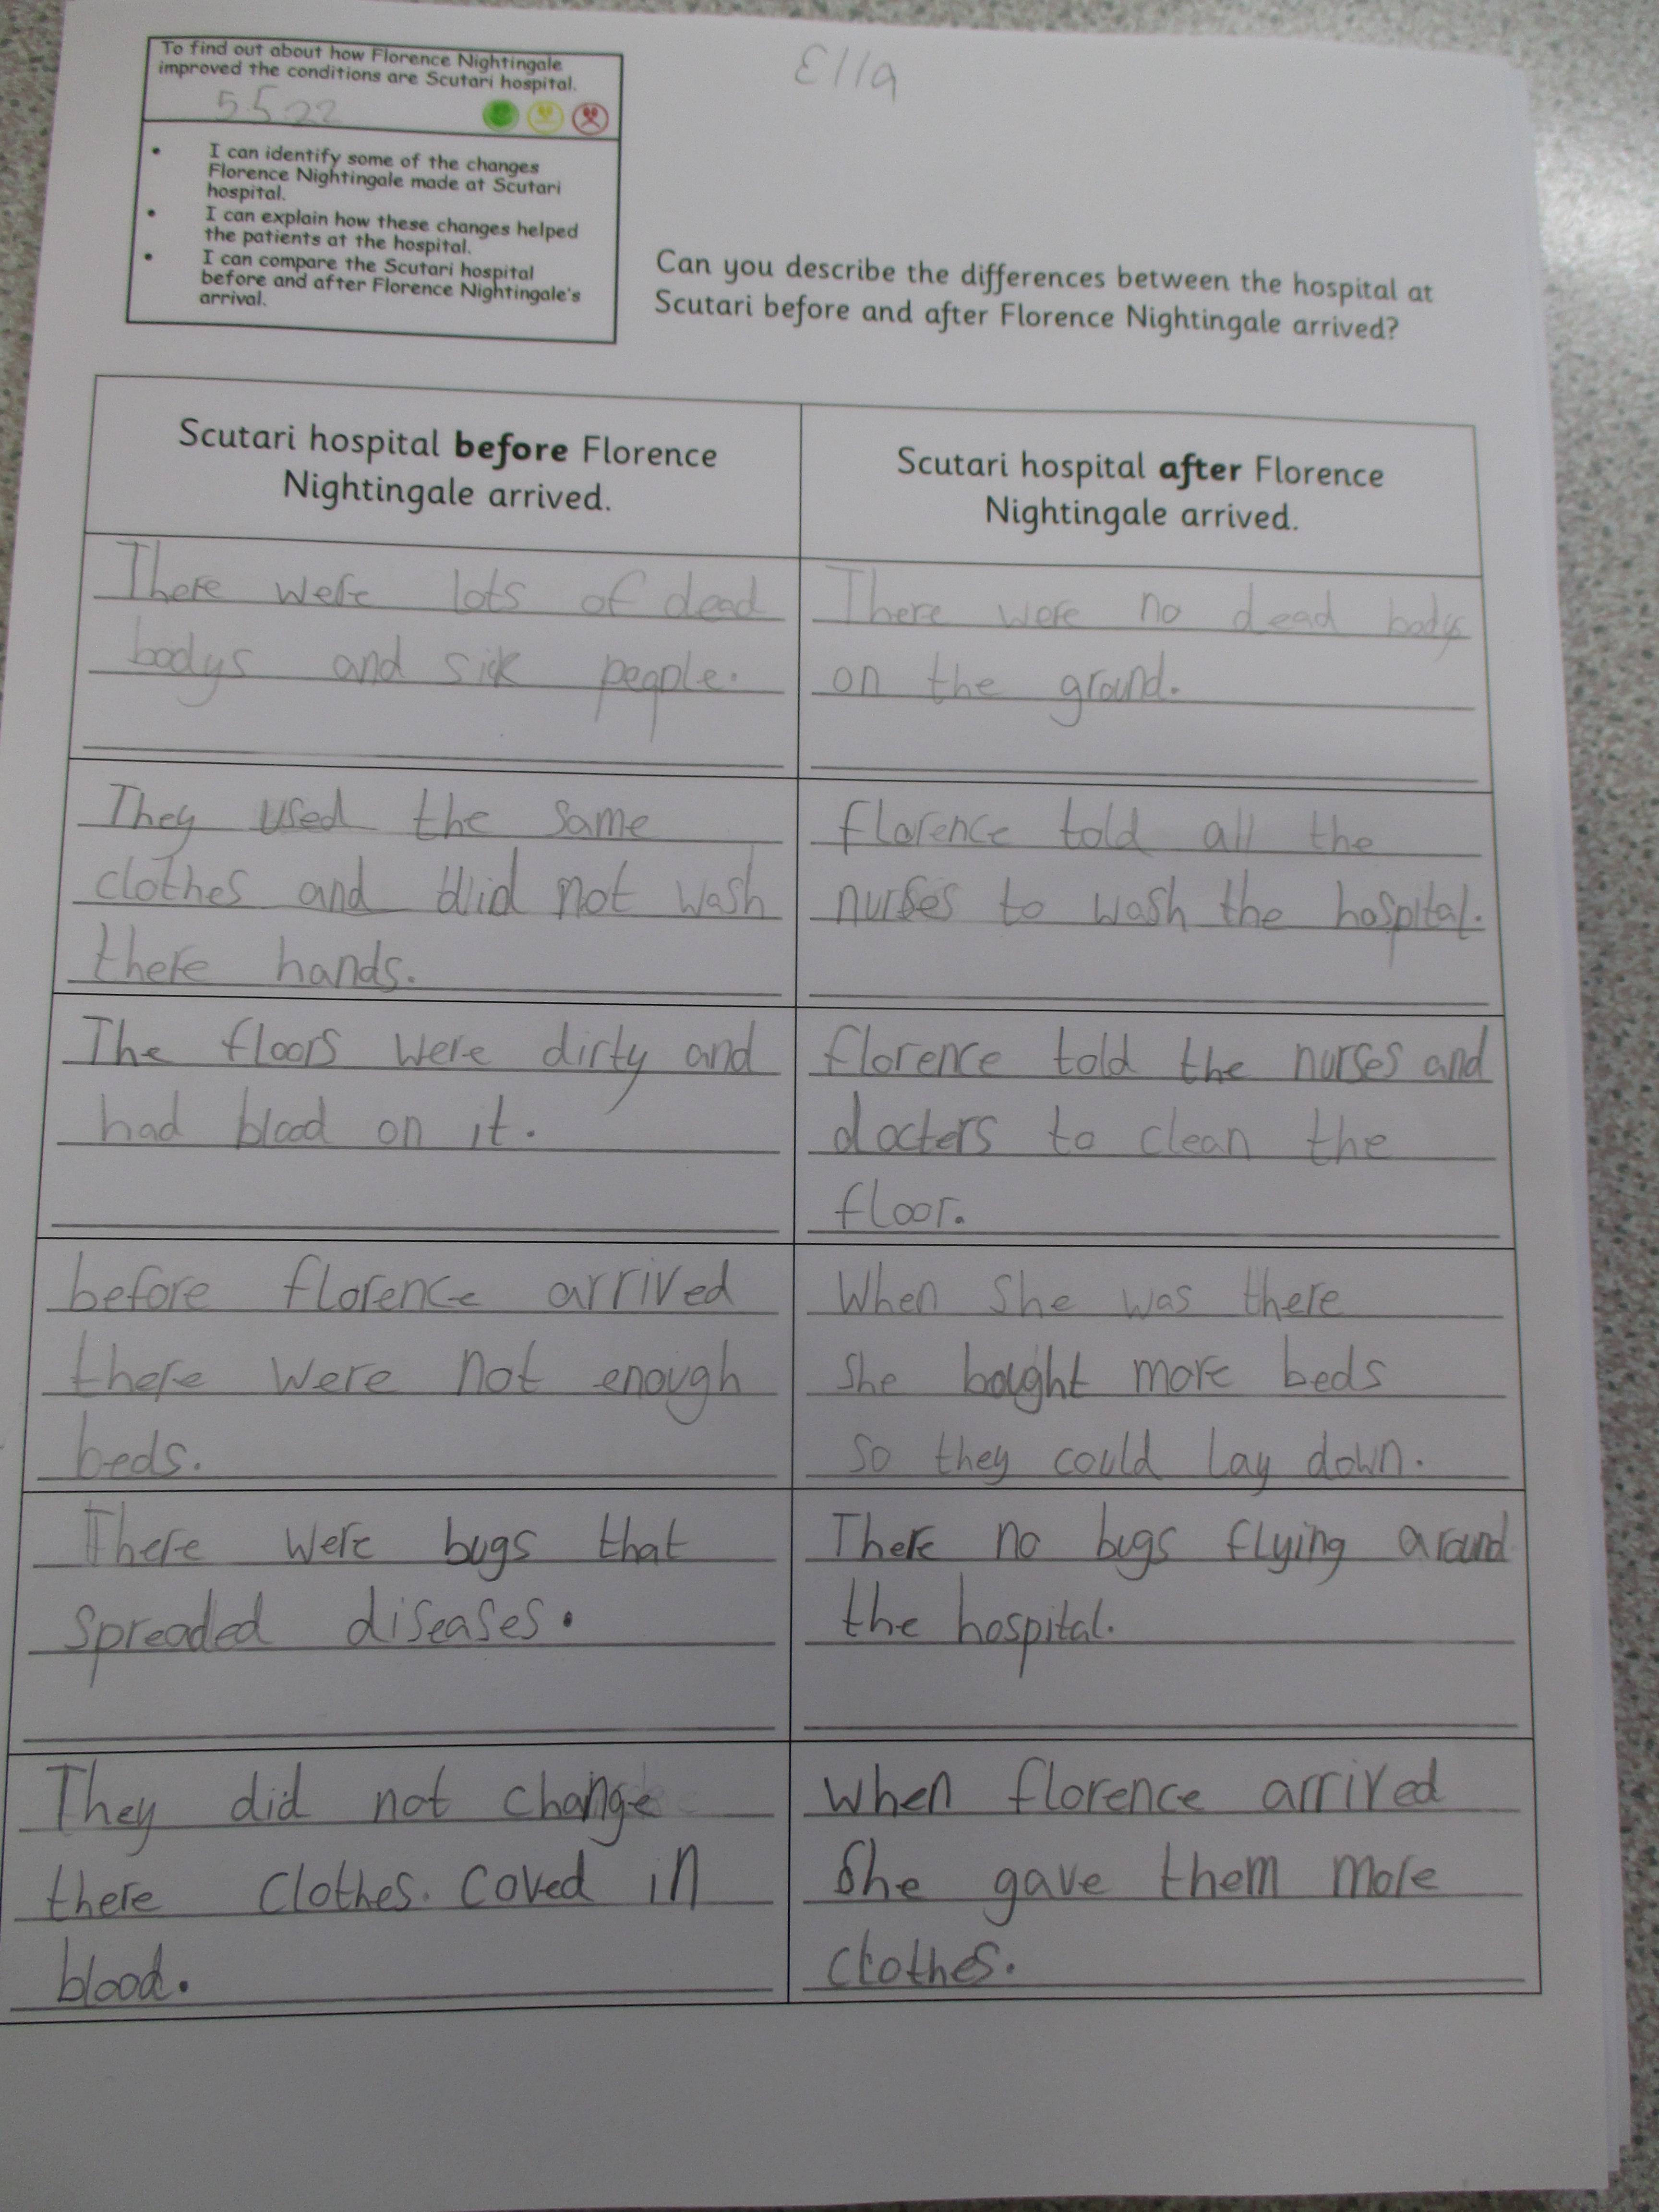 To find out about how Florence Nightingale
improved the conditions are Scutari hospital.
5 5 22
• I can identify some of the changes
Florence Nightingale made at Scutari
hospital.
• I can explain how these changes helped
the patients at the hospital.
• I can compare the Scutari hospital
before and after Florence Nightingale's
arrival.
Ella
Can you describe the differences between the hospital at
Scutari before and after Florence Nightingale arrived?
Scutari hospital before Florence
Nightingale arrived.
Scutari hospital after Florence
Nightingale arrived.
There were lots of dead
bodys and sick people.
There were no dead bodys
on the ground.
They used the same
clothes and did not wash
there hands.
florence told all the
nurses to wash the hospital.
The floors were dirty and
had blood on it.
florence told the nurses and
docters to clean the
floor.
before florence arrived
there were not enough
beds.
When she was there
she bought more beds
so they could lay down.
There were bugs that
spreaded diseases.
There no bugs flying around
the hospital.
They did not change
there clothes. coved in
blood.
when florence arrived
She gave them more
clothes.